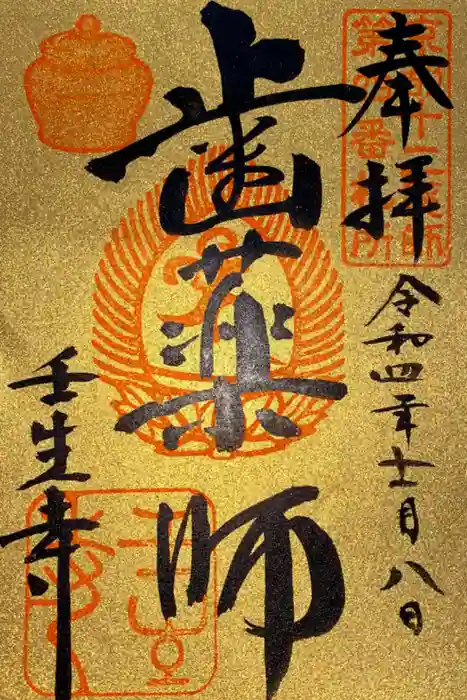 奉拝
令和四年十一月八日
歯薬師
壬生寺